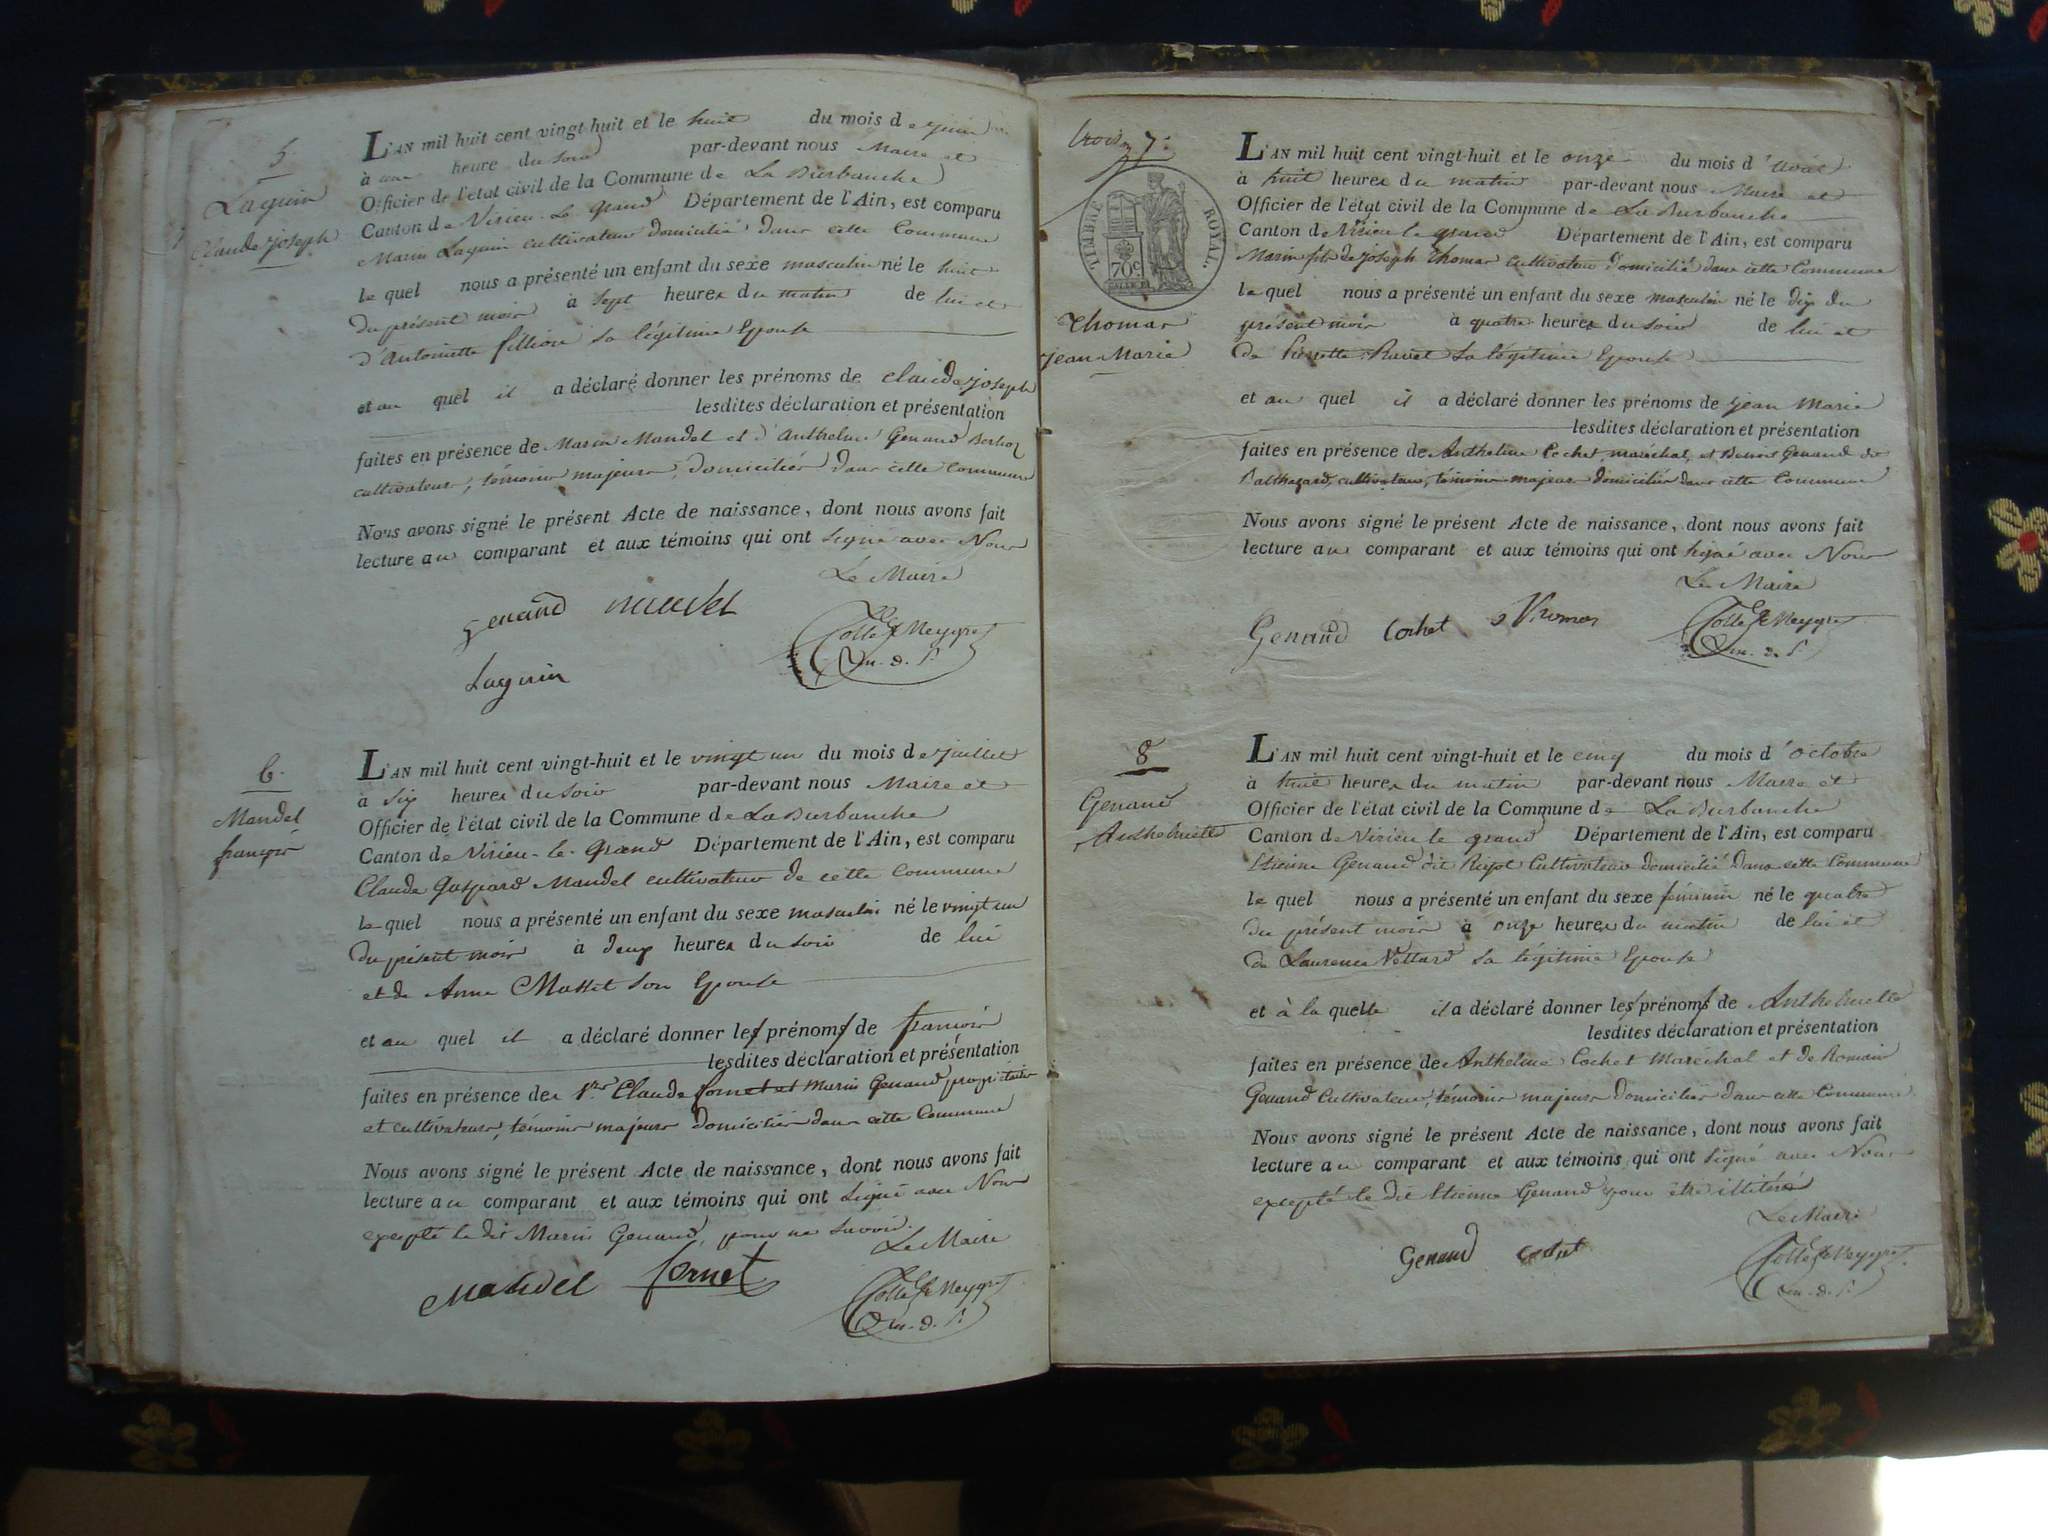 5
Laguin
Claude joseph
L'AN mil huit cent vingt-huit et le huit du mois de juin
à une heure du soir par-devant nous Maire et
Officier de l'état civil de la Commune de La Burbanche
Canton de Virieu-le-Grand Département de l'Ain, est comparu
Marin Laguin cultivateur domicilié dans cette Commune
le quel nous a présenté un enfant du sexe masculin né le huit
du présent mois à sept heures du matin de lui et
d'Antoinette fillion sa légitime Epouse
et au quel il a déclaré donner les prénoms de claude joseph
lesdites déclaration et présentation
faites en présence de Marin Mandel et d'Anthelme Genand
cultivateurs, témoins majeurs, domiciliés dans cette Commune
Nous avons signé le présent Acte de naissance, dont nous avons fait
lecture au comparant et aux témoins qui ont signé avec Nous
Le Maire
Genand Mandel
Laguin
6.
Mandel
françois
L'AN mil huit cent vingt-huit et le vingt un du mois de juillet
à six heures du soir par-devant nous Maire et
Officier de l'état civil de la Commune de La Burbanche
Canton de Virieu-le-Grand Département de l'Ain, est comparu
Claude Gaspard Mandel cultivateur de cette Commune
le quel nous a présenté un enfant du sexe masculin né le vingt un
du présent mois à deux heures du soir de lui
et de Anne Masset son Epouse
et au quel il a déclaré donner les prénoms de françois
lesdites déclaration et présentation
faites en présence de Claude fornet et Marin Genand propriétaires
et cultivateurs, témoins majeurs domiciliés dans cette Commune
Nous avons signé le présent Acte de naissance, dont nous avons fait
lecture au comparant et aux témoins qui ont signé avec Nous
excepté le dit Marin Genand, pour ne savoir.
Le Maire
Mandel fornet
7.
TIMBRE ROYAL.
70c
Thomas
jean Marie
L'AN mil huit cent vingt-huit et le onze du mois d'août
à huit heures du matin par-devant nous Maire et
Officier de l'état civil de la Commune de La Burbanche
Canton de Virieu le grand Département de l'Ain, est comparu
Marin fils de joseph Thomas cultivateur domicilié dans cette Commune
le quel nous a présenté un enfant du sexe masculin né le dix du
présent mois à quatre heures du soir de lui et
de Pierrette Ravet sa légitime Epouse
et au quel il a déclaré donner les prénoms de jean Marie
lesdites déclaration et présentation
faites en présence de Anthelme Cochet maréchal, et Benoit Genand de
Balthazard, cultivateur, témoins majeurs domiciliés dans cette Commune
Nous avons signé le présent Acte de naissance, dont nous avons fait
lecture au comparant et aux témoins qui ont signé avec Nous
Le Maire
Genand Cochet Thomas
8
Genand
Anthelmette
L'AN mil huit cent vingt-huit et le cinq du mois d'octobre
à huit heures du matin par-devant nous Maire et
Officier de l'état civil de la Commune de La Burbanche
Canton de Virieu le grand Département de l'Ain, est comparu
Etienne Genand dit Cultivateur domicilié dans cette Commune
le quel nous a présenté un enfant du sexe féminin né le quatre
du présent mois à onze heures du matin de lui et
de Laurence Vettard sa légitime Epouse
et à la quelle il a déclaré donner les prénoms de Anthelmette
lesdites déclaration et présentation
faites en présence de Anthelme Cochet Maréchal et de Romain
Genand Cultivateur, témoins majeurs domiciliés dans cette Commune
Nous avons signé le présent Acte de naissance, dont nous avons fait
lecture au comparant et aux témoins qui ont signé avec Nous
excepté le dit Etienne Genand pour être illitéré
Le Maire
Genand Cochet